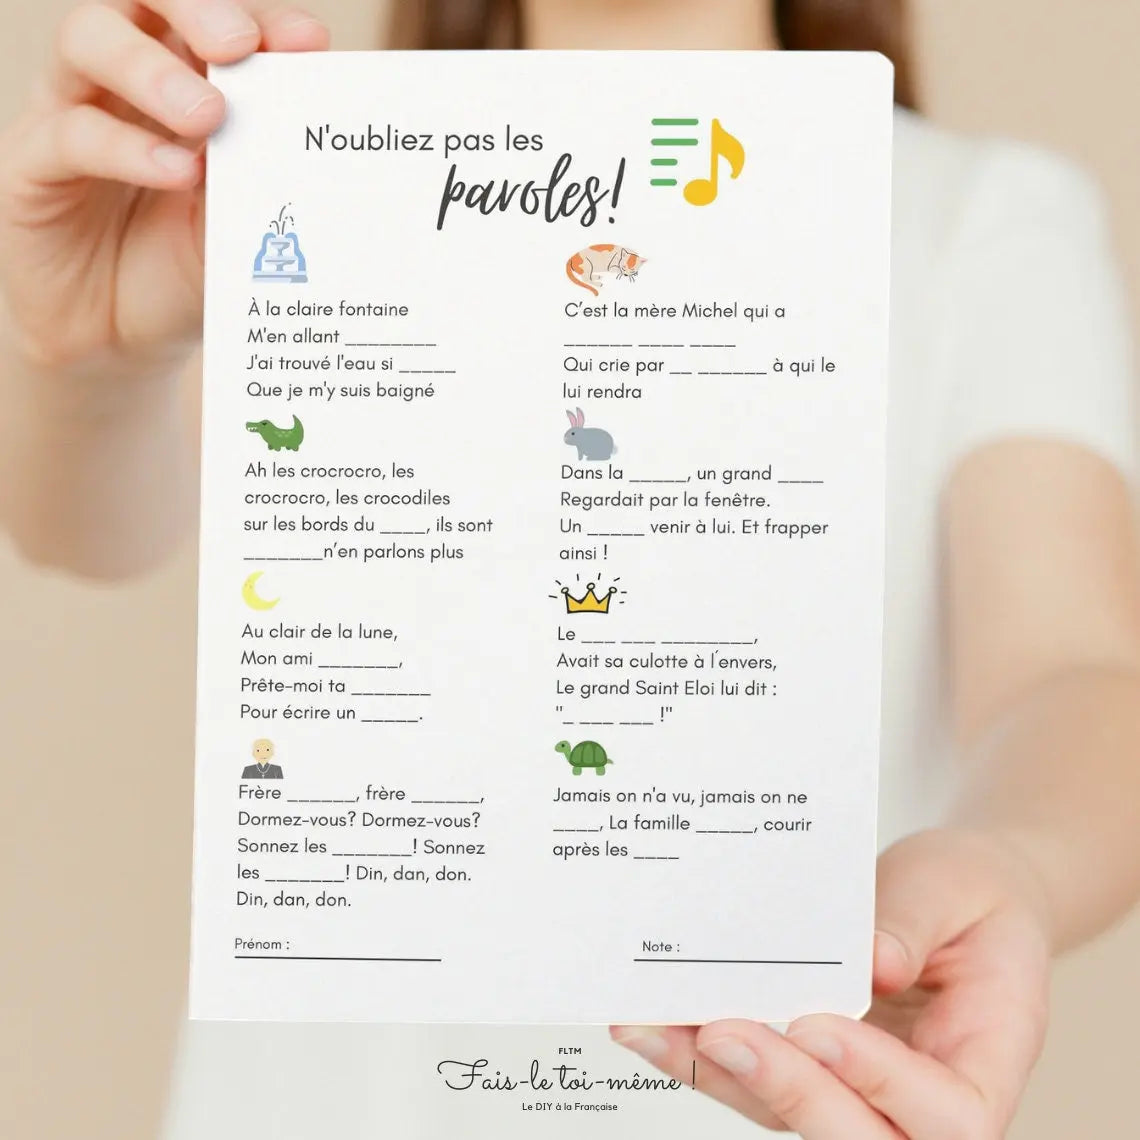 N'oubliez pas les
paroles!
À la claire fontaine
M'en allant ________
J'ai trouvé l'eau si _____
Que je m'y suis baigné
Ah les crocrocro, les
crocrocro, les crocodiles
sur les bords du ____, ils sont
_______n’en parlons plus
Au clair de la lune,
Mon ami _______,
Prête-moi ta _______
Pour écrire un _____.
Frère ______, frère ______,
Dormez-vous? Dormez-vous?
Sonnez les _______! Sonnez
les _______! Din, dan, don.
Din, dan, don.
C’est la mère Michel qui a
______ ____ ____
Qui crie par __ ______ à qui le
lui rendra
Dans la _____, un grand ____
Regardait par la fenêtre.
Un _____ venir à lui. Et frapper
ainsi !
Le ___ ___ ________,
Avait sa culotte à l'envers,
Le grand Saint Eloi lui dit :
"_ ___ ___ !"
Jamais on n'a vu, jamais on ne
____, La famille _____, courir
après les ____
Prénom :
Note :
FLTM
Fais-le toi-même !
Le DIY à la Française